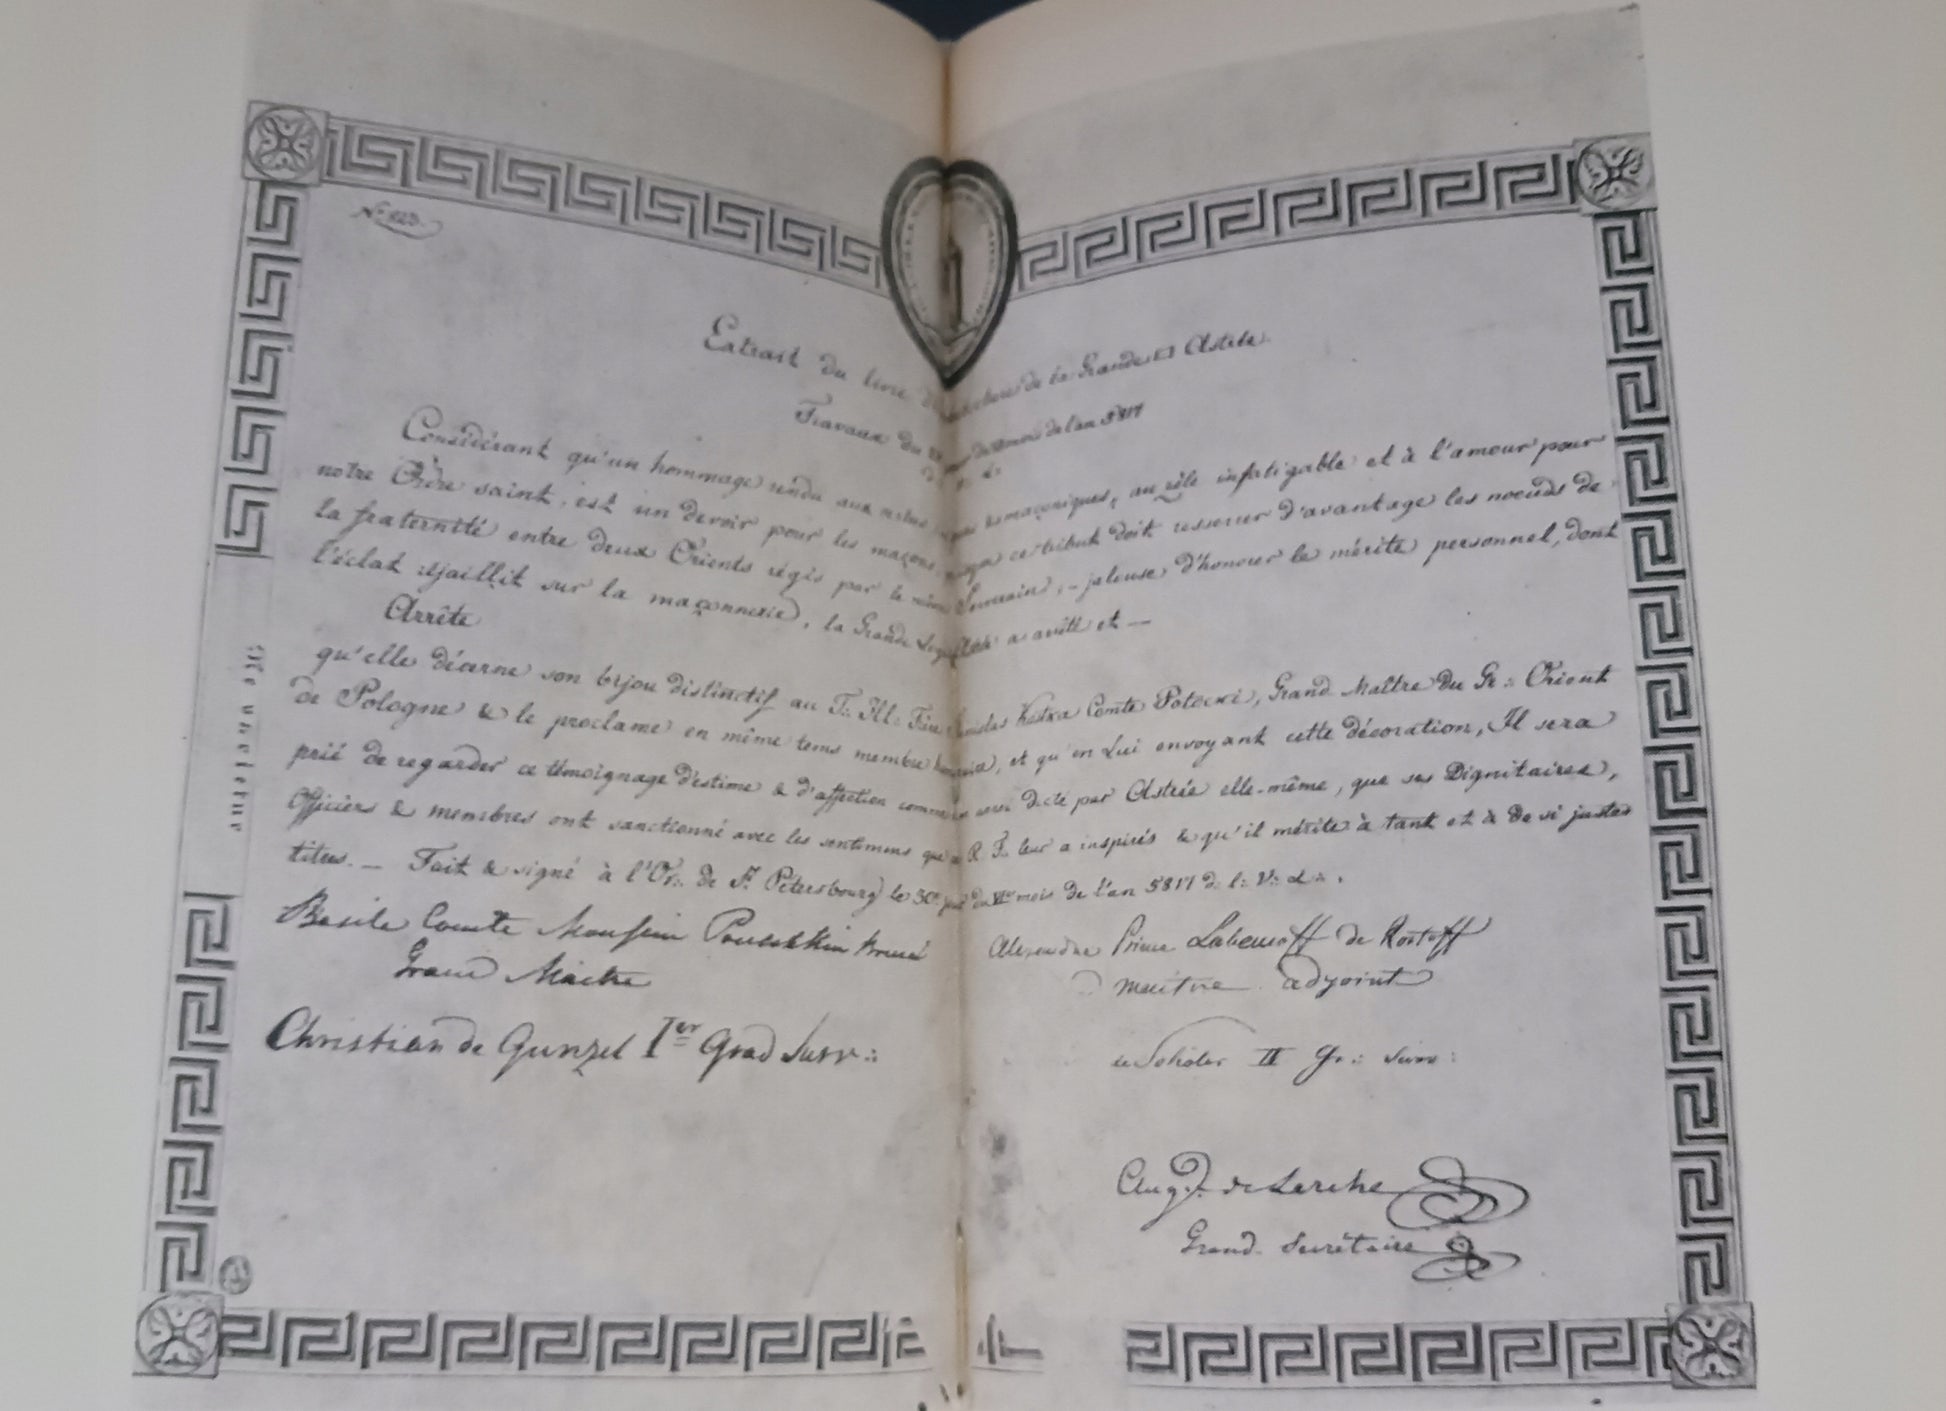 Extrait du livre de la Grande □ Astrée.
Travaux du mois de l'an 5817
Considérant qu'un hommage rendu aux maçoniques, au zèle infatigable et à l'amour pour
notre Ordre saint, est un devoir pour les maçons, ce tribut doit resserrer d'avantage les noeuds de
la fraternité entre deux Orients régis par le même Souverain; jalouse d'honorer le mérite personnel, dont
l'éclat rejaillit sur la maçonnerie, la Grande Loge Astrée a arrêté et —
Arrête
qu'elle décerne son bijou distinctif au T∴ Ill∴ Frère Stanislas Kostka Comte Potocki, Grand Maître du Gr∴ Orient
de Pologne & le proclame en même tems membre honoraire, et qu'en Lui envoyant cette décoration, Il sera
prié de regarder ce témoignage d'estime & d'affection comme dicté par Astrée elle-même, que ses Dignitaires,
Officiers & membres ont sanctionné avec les sentimens que R. F. leur a inspirés & qu'il mérite à tant et à de si justes
titres. — Fait & signé à l'Or∴ de St. Petersbourg le 30e jour du VIe mois de l'an 5817 d. l. V∴ L∴.
Basile Comte Moussin Pouschkin Bruce
Grand Maitre
Alexandre Prince Labanoff de Rostoff
Maitre adjoint
Christian de Gunzel Ier Grad Surv∴
II Gr∴ Surv:
Aug. de Lerche
Grand Secrétaire